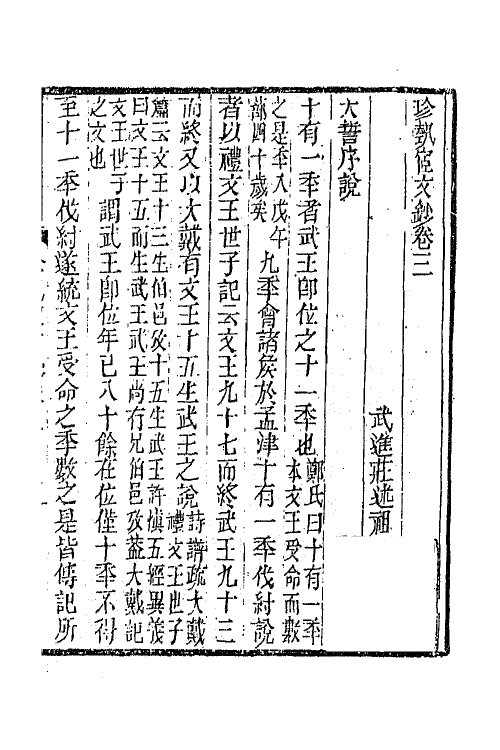 珍埶宧文鈔卷三
武進莊述祖
大誓序說
十有一秊者武王卽位之十一秊也鄭氏曰十有一秊本文王受命而數
之是秊入戊午蔀四十歲矣九秊會諸矦於孟津十有一秊伐紂說
者以禮文王世子記云文王九十七而終武王九十三
而終又以大戴有文王十五生武王之說詩譜疏大戴禮文王世子
篇云文王十三生伯邑攷十五生武王許愼五經異義曰文王十五而生武王武王尚有兄伯邑攷蓋大戴記
文王世子之文也謂武王卽位年已八十餘在位僅十秊不得
至十一秊伐紂遂統文王受命之秊數之是皆傳記所